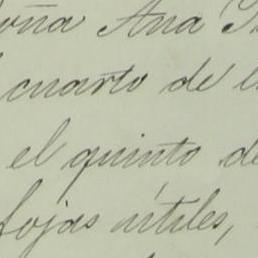 Doña Ana
cuarto de
el quinto de
fojas útiles,